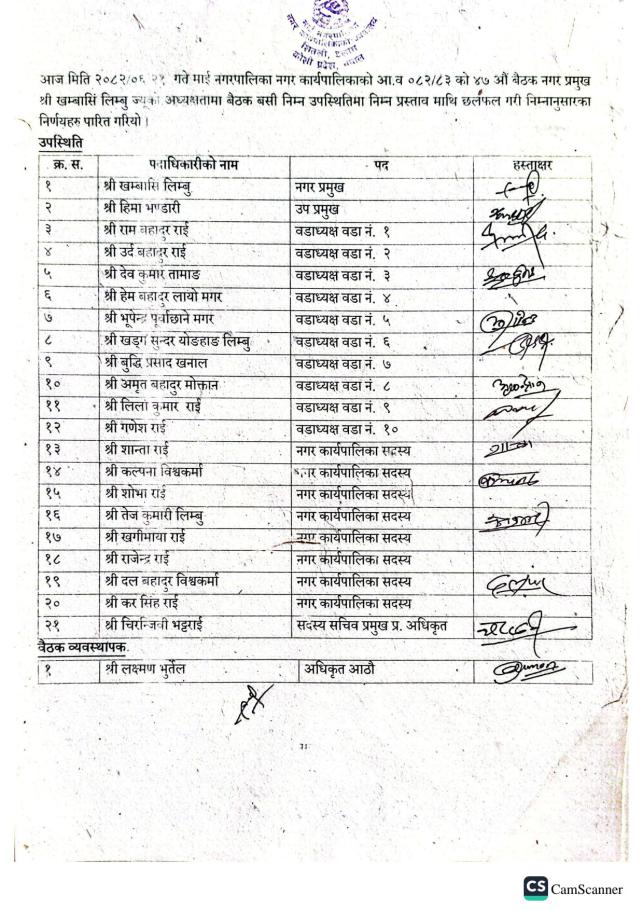 नगर कार्यपालिकाको कार्यालय
चितली, इलाम
कोशी प्रदेश, नेपाल
आज मिति २०८२/०६ २१ गते माई नगरपालिका नगर कार्यपालिकाको आ.व ०८२/८३ को ४७ औं बैठक नगर प्रमुख
श्री खम्बासिं लिम्बु ज्यूको अध्यक्षतामा बैठक बसी निम्न उपस्थितिमा निम्न प्रस्ताव माथि छलफल गरी निम्नानुसारका
निर्णयहरु पारित गरियो ।
उपस्थिति
क्र. स. पदाधिकारीको नाम पद हस्ताक्षर
१ श्री खम्बासिं लिम्बु नगर प्रमुख
२ श्री हिमा भण्डारी उप प्रमुख
३ श्री राम बहादुर राई वडाध्यक्ष वडा नं. १
४ श्री उर्द बहादुर राई वडाध्यक्ष वडा नं. २
५ श्री देव कुमार तामाङ वडाध्यक्ष वडा नं. ३
६ श्री हेम बहादुर लायो मगर वडाध्यक्ष वडा नं. ४
७ श्री भूपेन्द्र पूर्वाछाने मगर वडाध्यक्ष वडा नं. ५
८ श्री खड्ग सुन्दर योङहाङ लिम्बु वडाध्यक्ष वडा नं. ६
९ श्री बुद्धि प्रसाद खनाल वडाध्यक्ष वडा नं. ७
१० श्री अमृत बहादुर मोक्तान वडाध्यक्ष वडा नं. ८
११ श्री लिला कुमार राई वडाध्यक्ष वडा नं. ९
१२ श्री गणेश राई वडाध्यक्ष वडा नं. १०
१३ श्री शान्ता राई नगर कार्यपालिका सदस्य
१४ श्री कल्पना विश्वकर्मा नगर कार्यपालिका सदस्य
१५ श्री शोभा राई नगर कार्यपालिका सदस्य
१६ श्री तेज कुमारी लिम्बु नगर कार्यपालिका सदस्य
१७ श्री खगीमाया राई नगर कार्यपालिका सदस्य
१८ श्री राजेन्द्र राई नगर कार्यपालिका सदस्य
१९ श्री दल बहादुर विश्वकर्मा नगर कार्यपालिका सदस्य
२० श्री कर सिंह राई नगर कार्यपालिका सदस्य
२१ श्री चिरन्जिवी भट्टराई सदस्य सचिव प्रमुख प्र. अधिकृत
वैठक व्यवस्थापक
१ श्री लक्ष्मण भुर्तेल अधिकृत आठौ
CS CamScanner